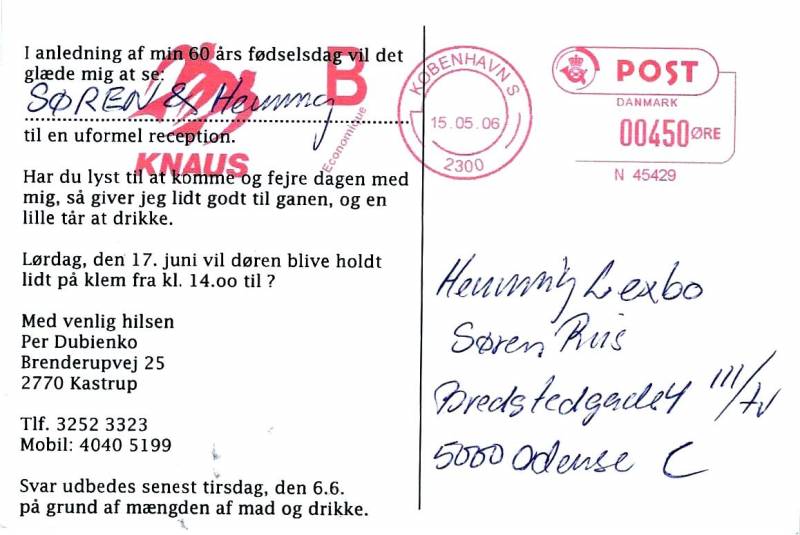 I anledning af min 60 års fødselsdag vil det
glæde mig at se:
SØREN & Henning
til en uformel reception.
Har du lyst til at komme og fejre dagen med
mig, så giver jeg lidt godt til ganen, og en
lille tår at drikke.
Lørdag, den 17. juni vil døren blive holdt
lidt på klem fra kl. 14.oo til ?
Med venlig hilsen
Per Dubienko
Brenderupvej 25
2770 Kastrup
Tlf. 3252 3323
Mobil: 4040 5199
Svar udbedes senest tirsdag, den 6.6.
på grund af mængden af mad og drikke.
KNAUS
B
Economique
KØBENHAVN S
15.05.06
2300
POST
DANMARK
00450 ØRE
N 45429
Henning Lexbo
Søren Riis
Bredstedgade 4 III/tv
5000 Odense C